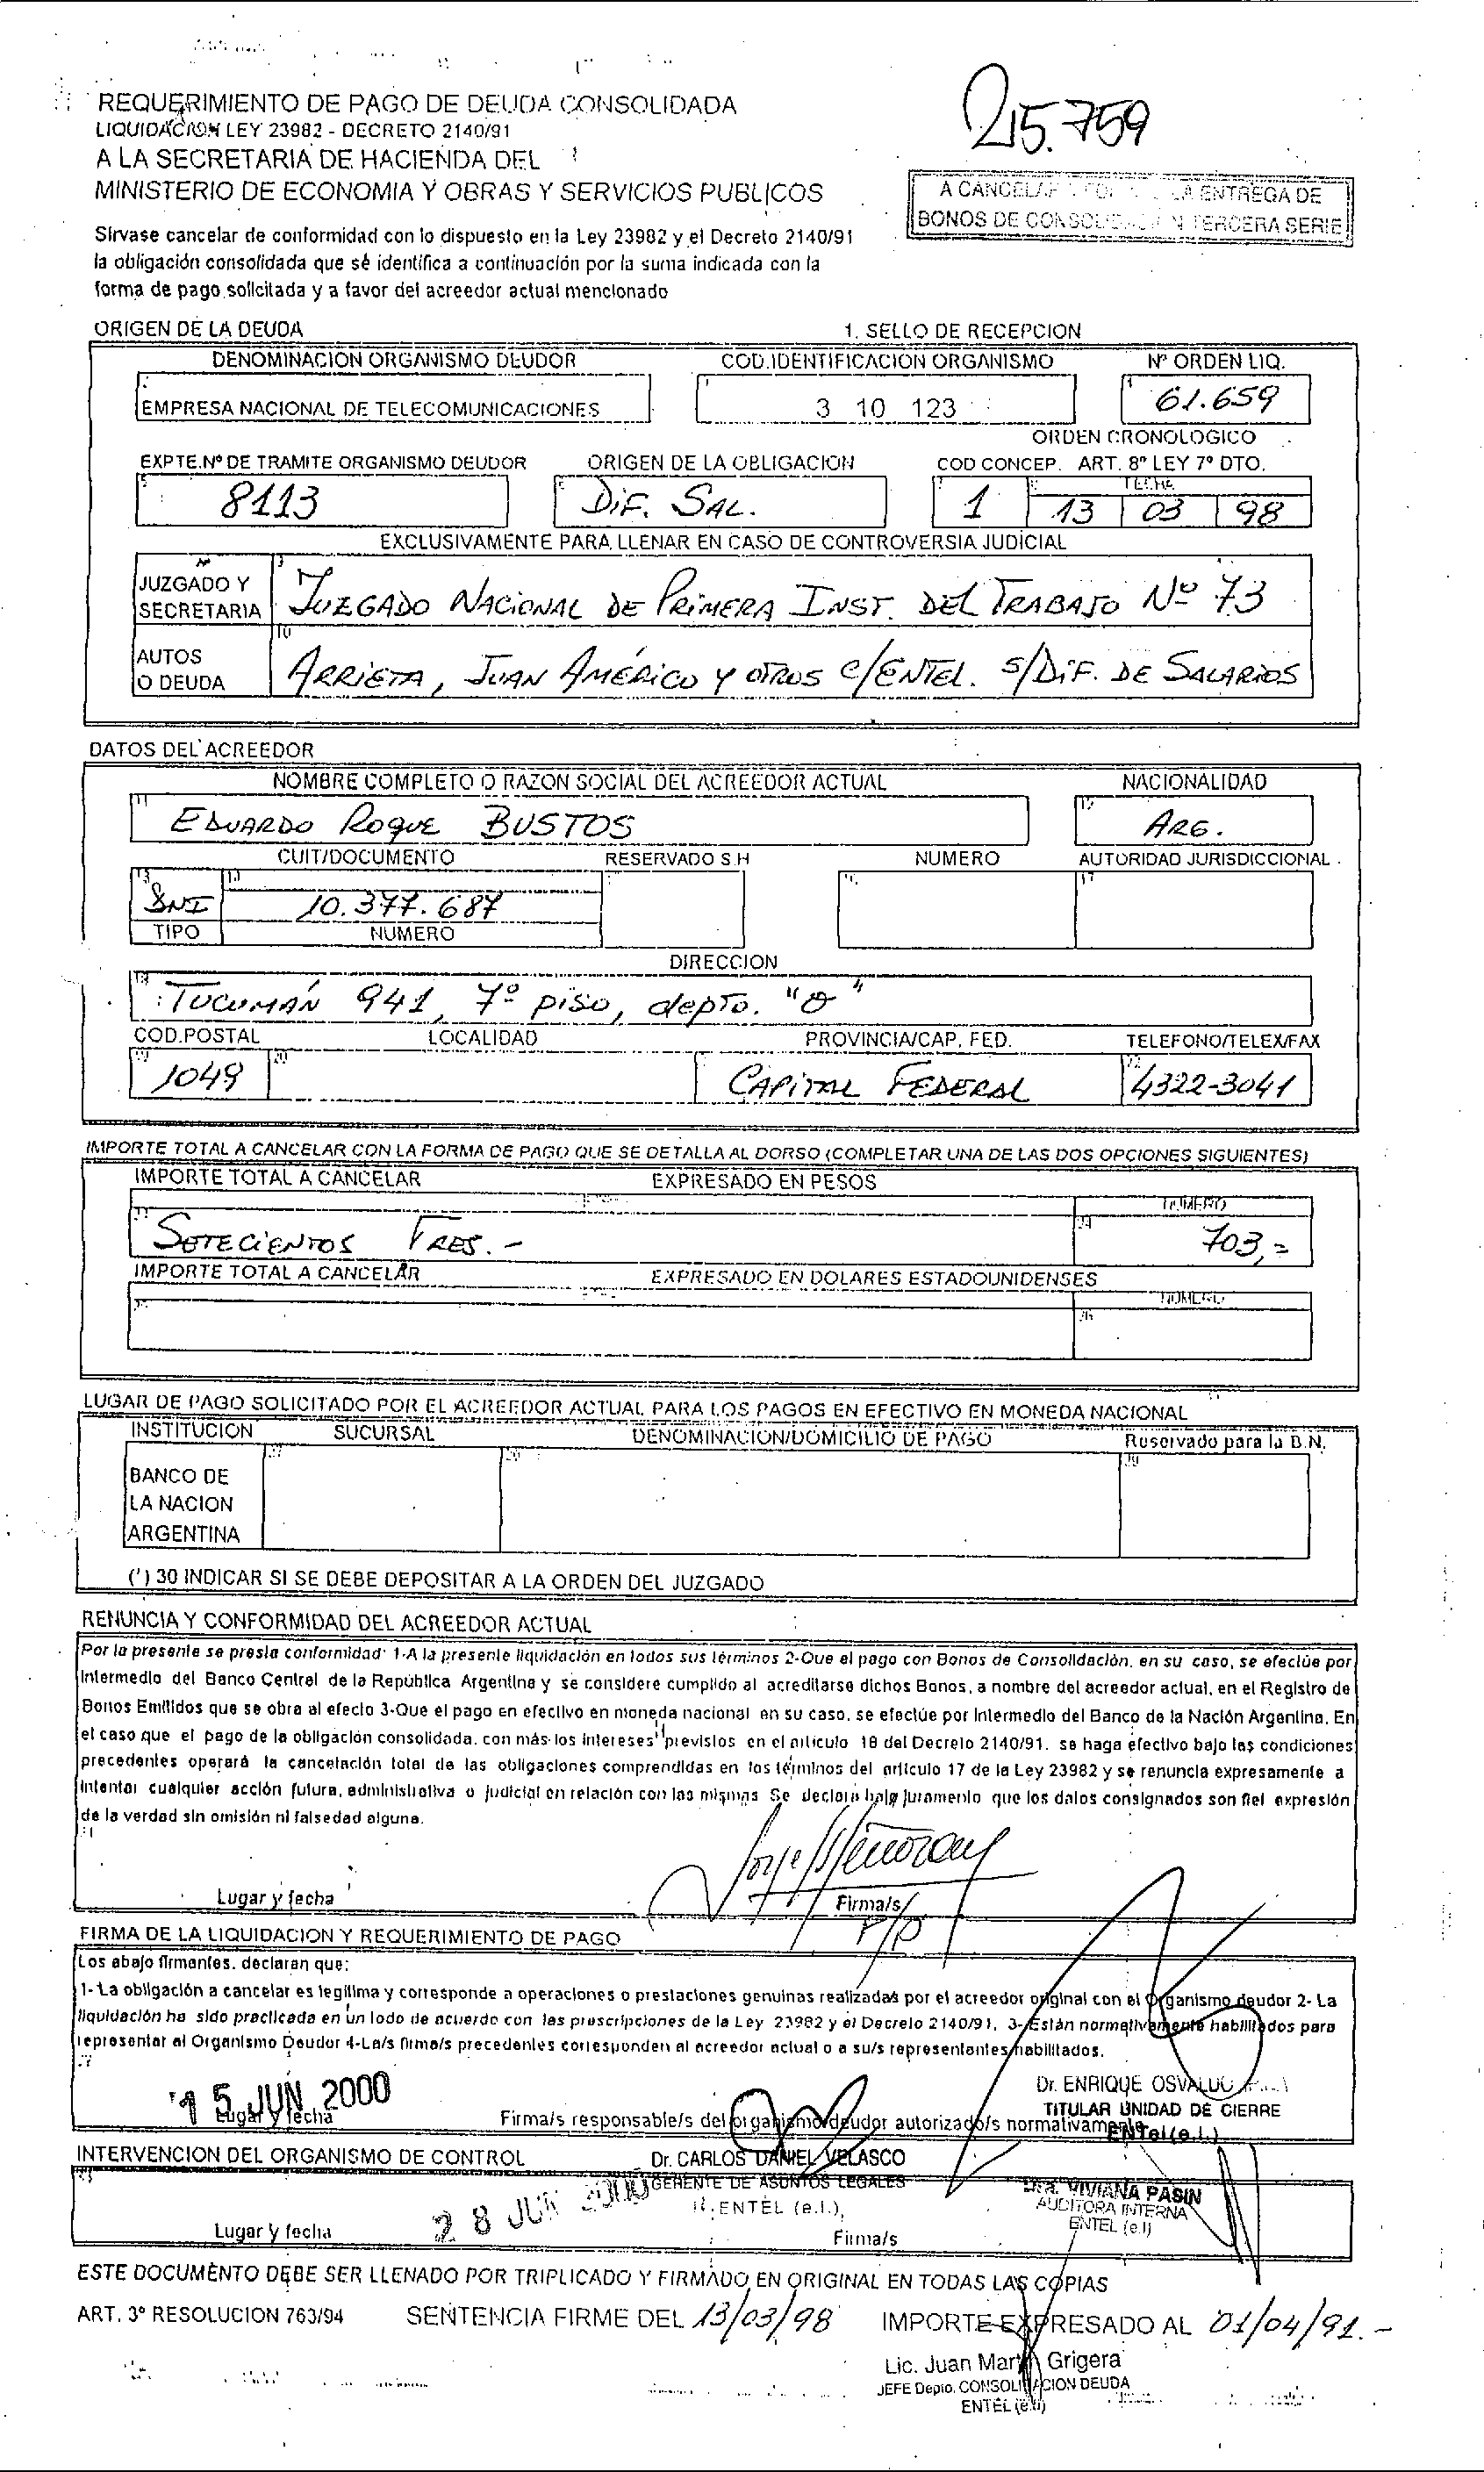 REQUERIMIENTO DE PAGO DE DEUDA CONSOLIDADA
LIQUIDACION LEY 23982 - DECRETO 2140/91
A LA SECRETARIA DE HACIENDA DEL
MINISTERIO DE ECONOMIA Y OBRAS Y SERVICIOS PUBLICOS
215.759
A CANCELAR ENTREGA DE
BONOS DE CONSOLIDACION TERCERA SERIE
Sírvase cancelar de conformidad con lo dispuesto en la Ley 23982 y el Decreto 2140/91
la obligación consolidada que sé identifica a continuación por la suma indicada con la
forma de pago solicitada y a favor del acreedor actual mencionado
ORIGEN DE LA DEUDA 1. SELLO DE RECEPCION
DENOMINACION ORGANISMO DEUDOR COD.IDENTIFICACION ORGANISMO Nº ORDEN LIQ.
EMPRESA NACIONAL DE TELECOMUNICACIONES 3 10 123 61.659
ORDEN CRONOLOGICO
EXPTE.Nº DE TRAMITE ORGANISMO DEUDOR ORIGEN DE LA OBLIGACION COD CONCEP. ART. 8º LEY 7º DTO.
FECHA
8113 DIF. SAL. 1 13 03 98
EXCLUSIVAMENTE PARA LLENAR EN CASO DE CONTROVERSIA JUDICIAL
JUZGADO Y
SECRETARIA JUZGADO NACIONAL DE PRIMERA INST. DEL TRABAJO Nº 73
AUTOS
O DEUDA ARRIETA, JUAN AMÉRICO Y OTROS C/ENTEL. S/DIF. DE SALARIOS
DATOS DEL ACREEDOR
NOMBRE COMPLETO O RAZON SOCIAL DEL ACREEDOR ACTUAL NACIONALIDAD
EDUARDO ROQUE BUSTOS ARG.
CUIT/DOCUMENTO RESERVADO S.H NUMERO AUTORIDAD JURISDICCIONAL
DNI 10.377.687
TIPO NUMERO
DIRECCION
TUCUMÁN 941, 7º piso, depto. "O"
COD.POSTAL LOCALIDAD PROVINCIA/CAP. FED. TELEFONO/TELEX/FAX
1049 CAPITAL FEDERAL 4322-3041
IMPORTE TOTAL A CANCELAR CON LA FORMA DE PAGO QUE SE DETALLA AL DORSO (COMPLETAR UNA DE LAS DOS OPCIONES SIGUIENTES)
IMPORTE TOTAL A CANCELAR EXPRESADO EN PESOS
NUMERO
SETECIENTOS TRES.- 703,=
IMPORTE TOTAL A CANCELAR EXPRESADO EN DOLARES ESTADOUNIDENSES
NUMERO
LUGAR DE PAGO SOLICITADO POR EL ACREEDOR ACTUAL PARA LOS PAGOS EN EFECTIVO EN MONEDA NACIONAL
INSTITUCION SUCURSAL DENOMINACION/DOMICILIO DE PAGO Reservado para la B.N.
BANCO DE
LA NACION
ARGENTINA
(') 30 INDICAR SI SE DEBE DEPOSITAR A LA ORDEN DEL JUZGADO
RENUNCIA Y CONFORMIDAD DEL ACREEDOR ACTUAL
Por la presente se presta conformidad: 1-A la presente liquidación en todos sus términos 2-Que el pago con Bonos de Consolidación, en su caso, se efectúe por
Intermedio del Banco Central de la República Argentina y se considere cumplido al acreditarse dichos Bonos, a nombre del acreedor actual, en el Registro de
Bonos Emitidos que se obra al efecto 3-Que el pago en efectivo en moneda nacional en su caso, se efectúe por Intermedio del Banco de la Nación Argentina. En
el caso que el pago de la obligación consolidada, con más los intereses previstos en el artículo 18 del Decreto 2140/91, se haga efectivo bajo las condiciones
precedentes operará la cancelación total de las obligaciones comprendidas en los términos del artículo 17 de la Ley 23982 y se renuncia expresamente a
Intentar cualquier acción futura, administrativa o judicial en relación con las mismas Se declara bajo juramento que los datos consignados son fiel expresión
de la verdad sin omisión ni falsedad alguna.
Lugar y fecha Firma/s
P/P
FIRMA DE LA LIQUIDACION Y REQUERIMIENTO DE PAGO
Los abajo firmantes, declaran que:
1- La obligación a cancelar es legítima y corresponde a operaciones o prestaciones genuinas realizadas por el acreedor original con el Organismo deudor 2- La
liquidación ha sido practicada en un todo de acuerdo con las prescripciones de la Ley 23982 y el Decreto 2140/91, 3- Están normativamente habilitados para
representar al Organismo Deudor 4-La/s firma/s precedentes corresponden al acreedor actual o a su/s representantes habilitados.
15 JUN 2000
Dr. ENRIQUE OSVALDO
TITULAR UNIDAD DE CIERRE
ENTel (e.l.)
Lugar y fecha Firma/s responsable/s del organismo deudor autorizado/s normativamente
INTERVENCION DEL ORGANISMO DE CONTROL
Dr. CARLOS DANIEL VELASCO
GERENTE DE ASUNTOS LEGALES
ENTEL (e.l.)
28 JUN 2000
Dra. VIVIANA PASIN
AUDITORA INTERNA
ENTEL (e.l)
Lugar y fecha Firma/s
ESTE DOCUMENTO DEBE SER LLENADO POR TRIPLICADO Y FIRMADO EN ORIGINAL EN TODAS LAS COPIAS
ART. 3º RESOLUCION 763/94 SENTENCIA FIRME DEL 13/03/98 IMPORTE EXPRESADO AL 01/04/91.-
Lic. Juan Martín Grigera
JEFE Depto. CONSOLIDACION DEUDA
ENTEL (e.l)